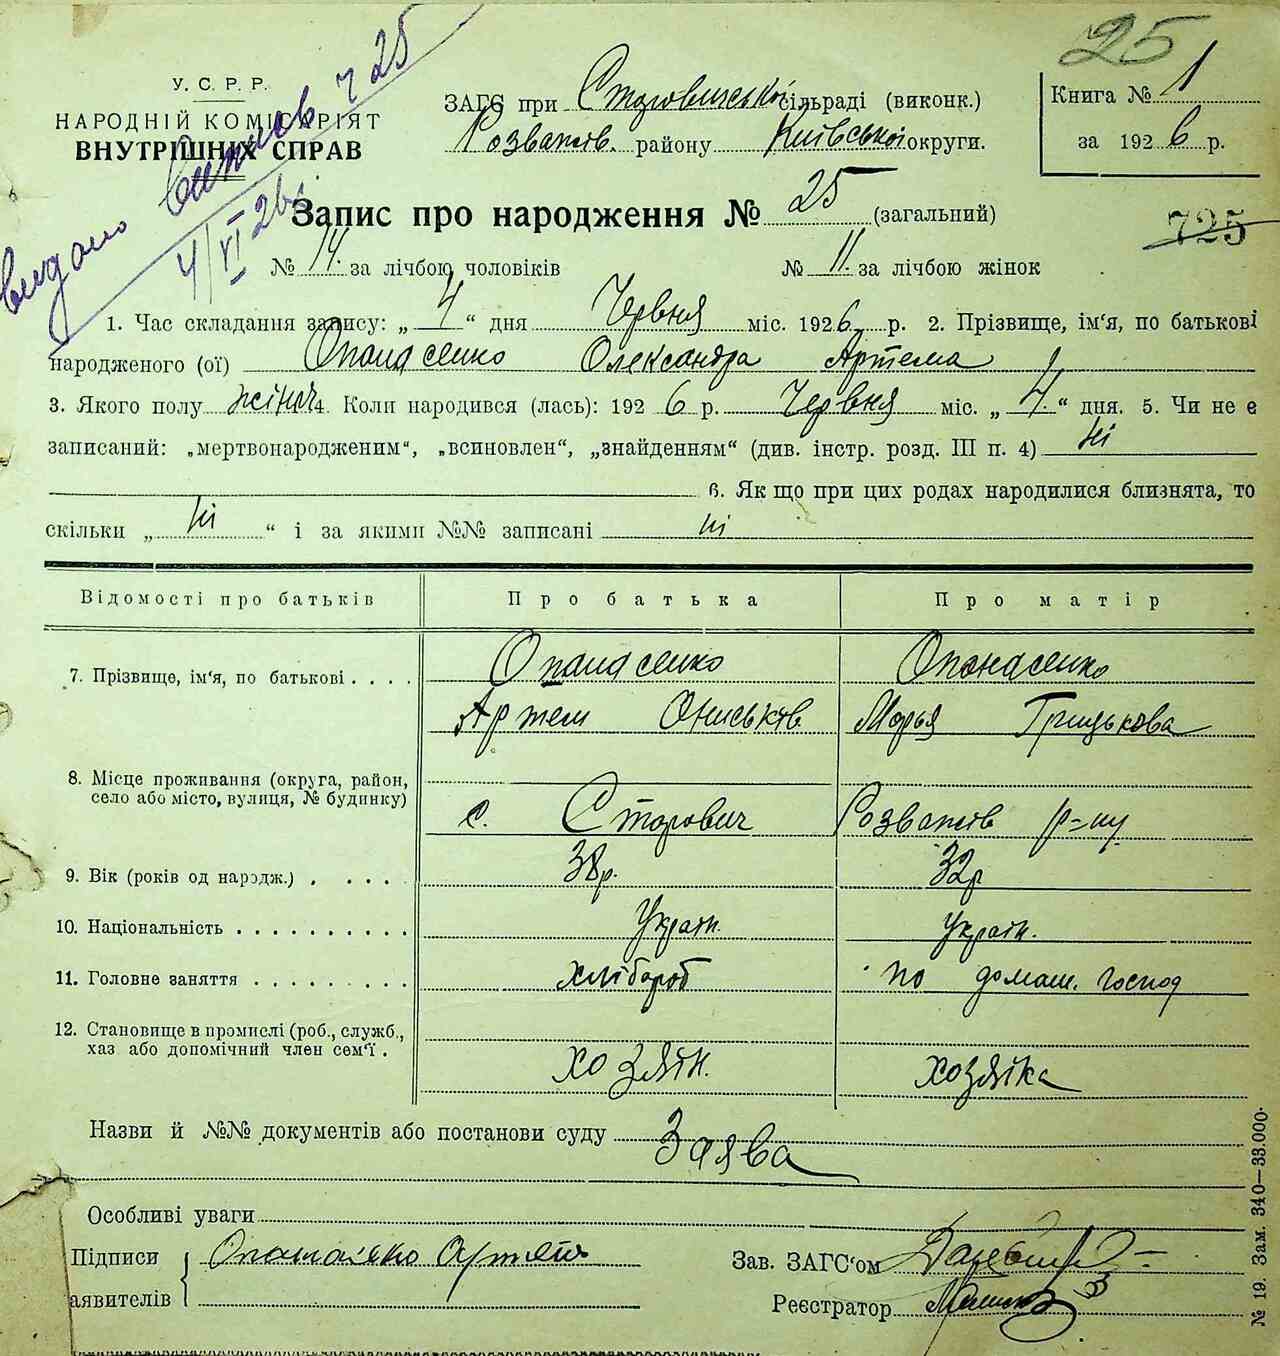 25
У. С. Р. Р.
НАРОДНІЙ КОМІСАРІЯТ
ВНУТРІШНІХ СПРАВ
видано Витись ч 25
4/VI 26
ЗАГС при Старовицькой сільраді (виконк.)
Розважів. району Київської округи.
Книга № 1
за 1926 р.
Запис про народження № 25 (загальний)
725
№ 14. за лічбою чоловіків № 11. за лічбою жінок
1. Час складання запису: „ 4 “ дня Червня міс. 1926 р. 2. Прізвище, ім'я, по батькові
народженого (ої) Опанасенко Олександра Артема
3. Якого полу жіноч 4. Коли народився (лась): 192 6 р. Червня міс. „ 4. “ дня. 5. Чи не є
записаний: „мертвонародженим“, „всиновлен“, „знайденням“ (див. інстр. розд. III п. 4) Ні
6. Як що при цих родах народилися близнята, то
скільки „ Ні “ і за якими №№ записані ні
Відомості про батьків Про батька Про матір
7. Прізвище, ім'я, по батькові . . . . Опанасенко Опанасенко
Артем Ониськів Марья Грицькова
8. Місце проживання (округа, район,
село або місто, вулиця, № будинку)
с. Старович Розважів р-ну
9. Вік (років од народж.) . . . . 38р. 32р
10. Національність . . . . . . . . . . Україн. Україн.
11. Головне заняття . . . . . . . . . хлібороб по домаш. господ
12. Становище в промислі (роб., служб.,
хаз або допомічний член сем'ї .
хозяїн. хозяїка
Назви й №№ документів або постанови суду Заява
Особливі уваги
Підписи Опанасенко Артем
аявителів
Зав. ЗАГС'ом
Реєстратор
№ 19. Зам. 340—33.000.